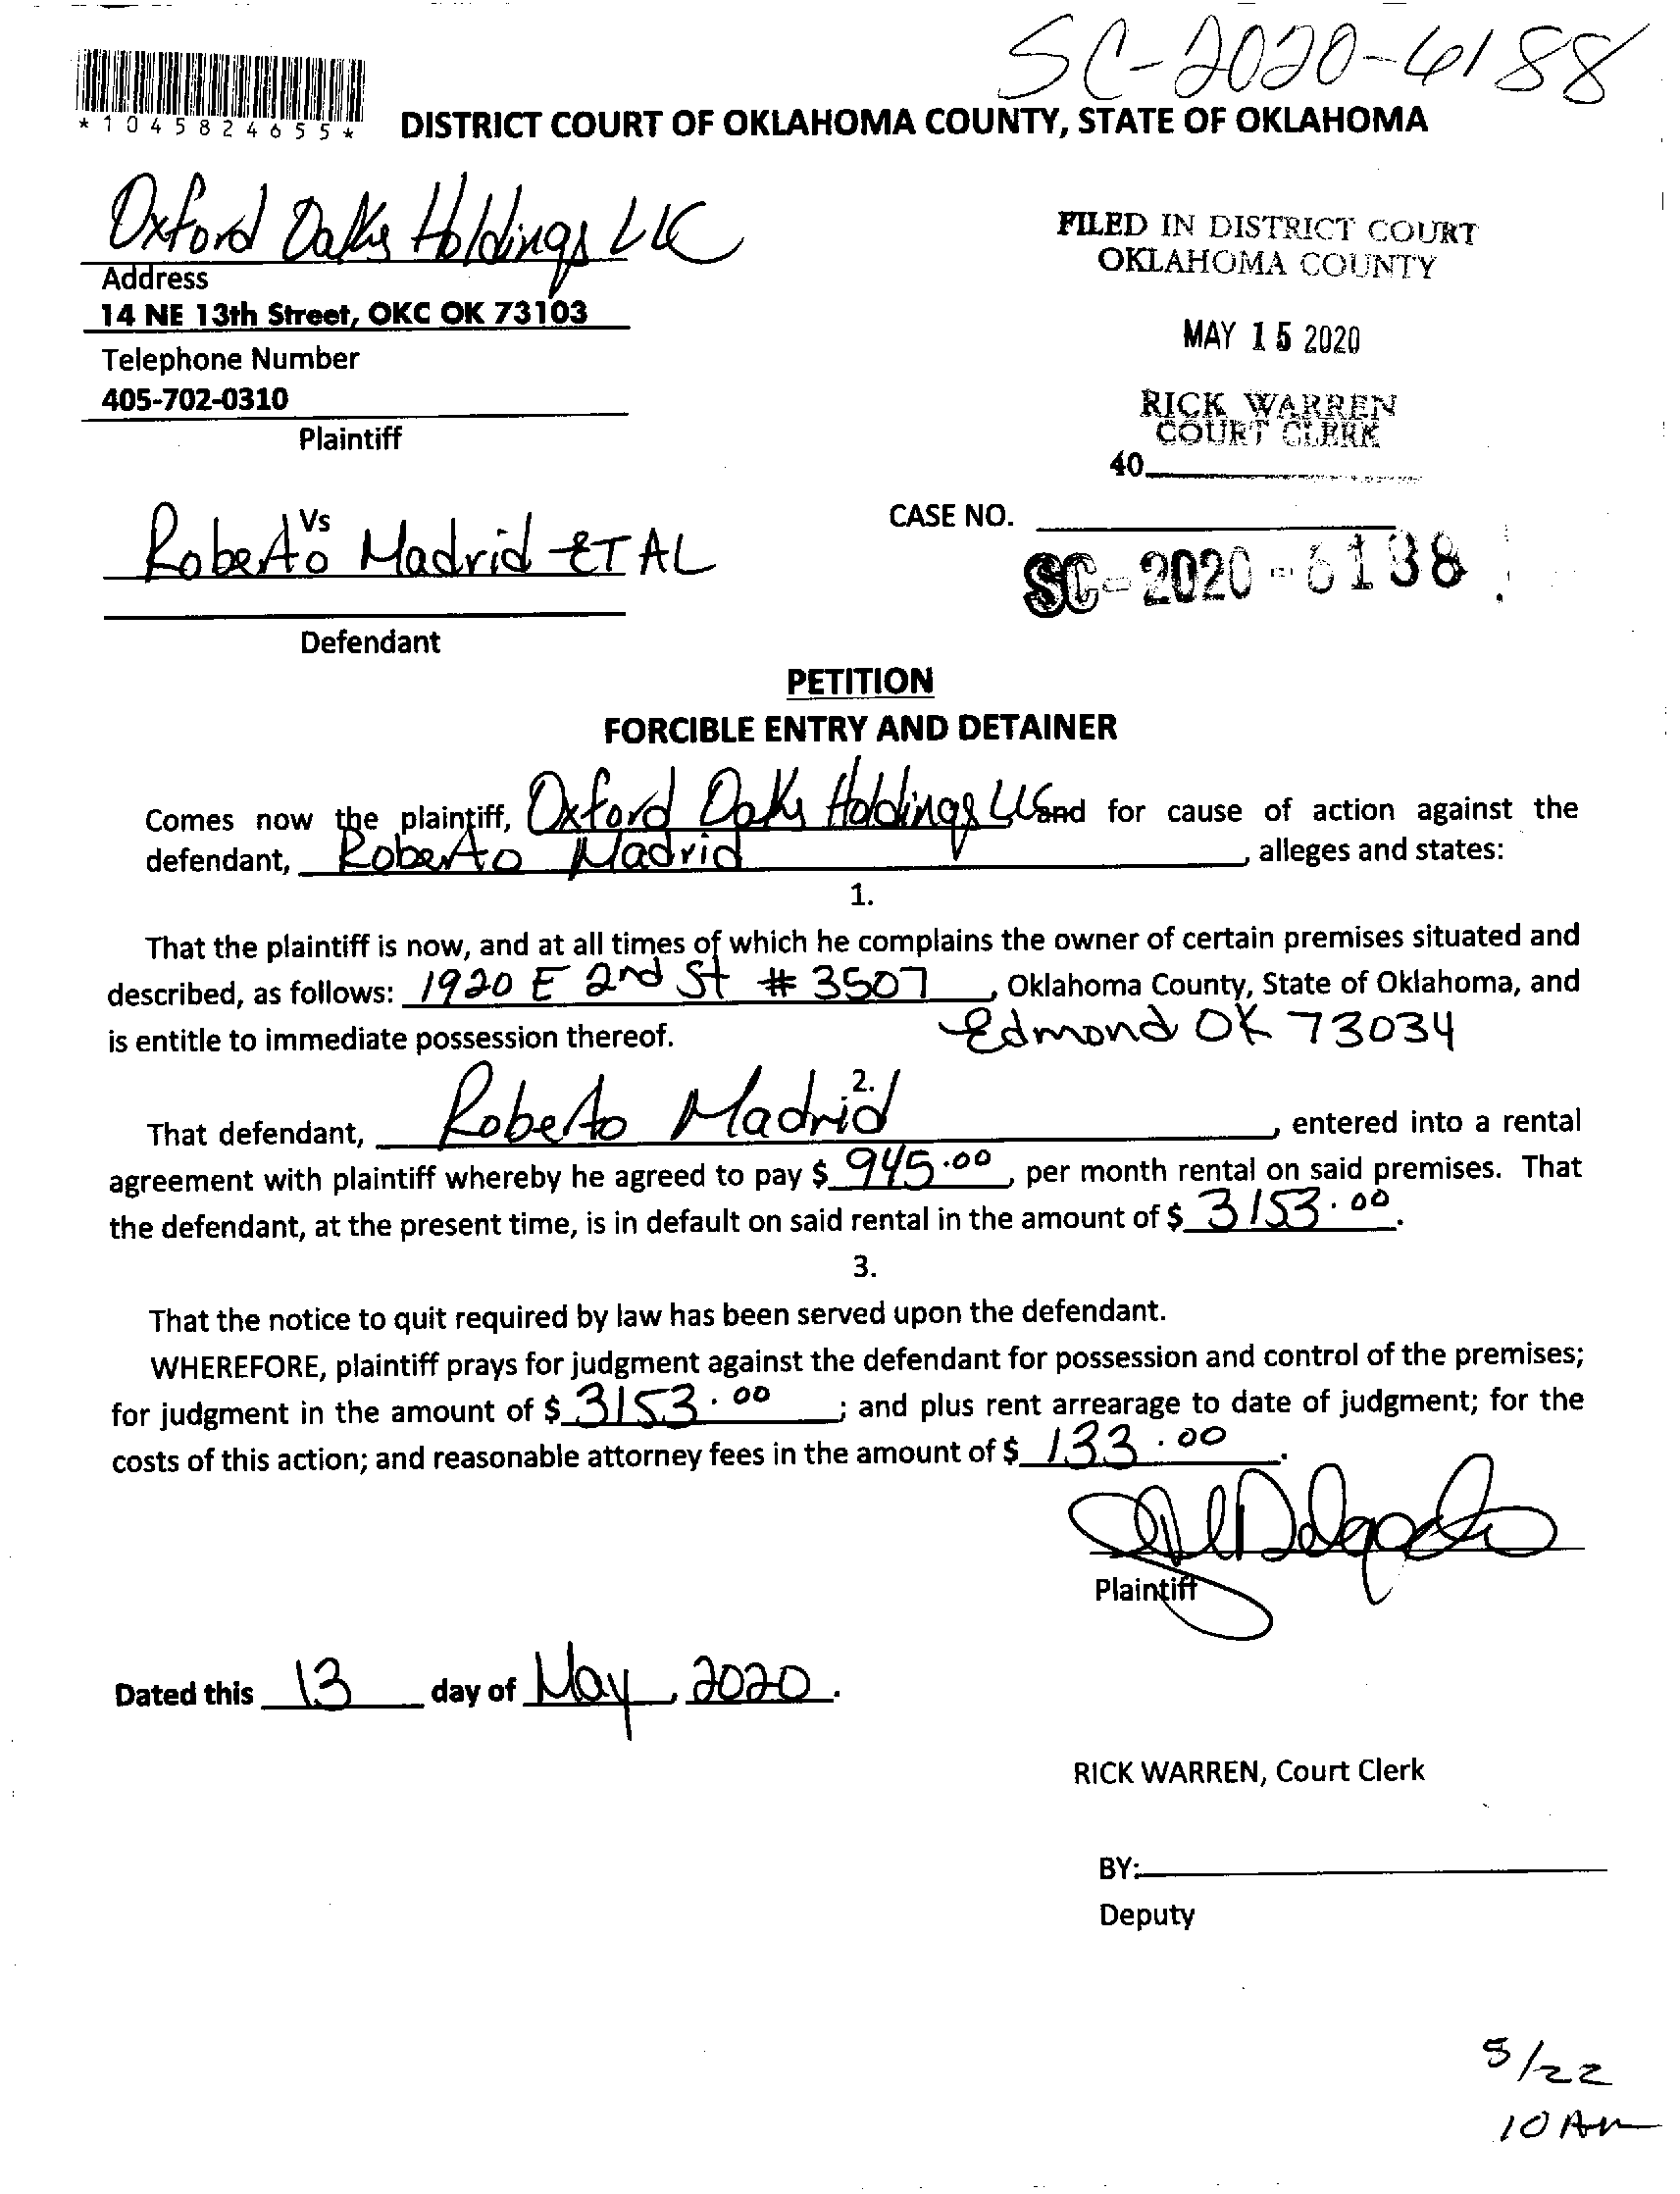 SC-2020-6188
*1045824655*
DISTRICT COURT OF OKLAHOMA COUNTY, STATE OF OKLAHOMA
Oxford Oaks Holdings LLC
Address
14 NE 13th Street, OKC OK 73103
Telephone Number
405-702-0310
Plaintiff
FILED IN DISTRICT COURT
OKLAHOMA COUNTY
MAY 15 2020
RICK WARREN
COURT CLERK
40
Vs
Roberto Madrid ET AL
Defendant
CASE NO.
SC-2020-6188
PETITION
FORCIBLE ENTRY AND DETAINER
Comes now the plaintiff, Oxford Oaks Holdings LLC and for cause of action against the
defendant, Roberto Madrid, alleges and states:
1.
That the plaintiff is now, and at all times of which he complains the owner of certain premises situated and
described, as follows: 1920 E 2nd St # 3507, Oklahoma County, State of Oklahoma, and
is entitle to immediate possession thereof. Edmond OK 73034
2.
That defendant, Roberto Madrid, entered into a rental
agreement with plaintiff whereby he agreed to pay $ 945.00, per month rental on said premises. That
the defendant, at the present time, is in default on said rental in the amount of $ 3153.00.
3.
That the notice to quit required by law has been served upon the defendant.
WHEREFORE, plaintiff prays for judgment against the defendant for possession and control of the premises;
for judgment in the amount of $ 3153.00; and plus rent arrearage to date of judgment; for the
costs of this action; and reasonable attorney fees in the amount of $ 133.00.
Plaintiff
Dated this 13 day of May, 2020.
RICK WARREN, Court Clerk
BY:
Deputy
5/22
10 AM